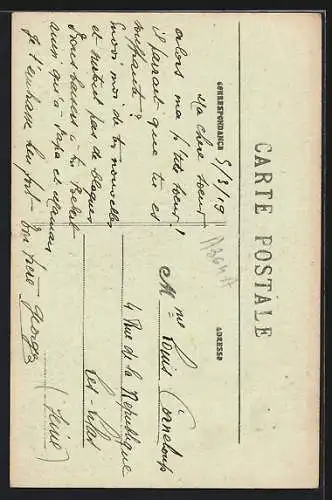 CARTE POSTALE
CORRESPONDANCE
ADRESSE
5/8/19
Ma chère soeur
alors ma p'tite soeur !
il parait que tu es
souffrante ?
Envoi moi de tes nouvelles
et surtout pas de blagues
Bons baisers à
ainsi qu'à Papa et Maman
Je t'embrasse bien fort
Ton frère Georges
Mme Louis Corneloup
4 Rue de la République
Les Lilas
(Seine)